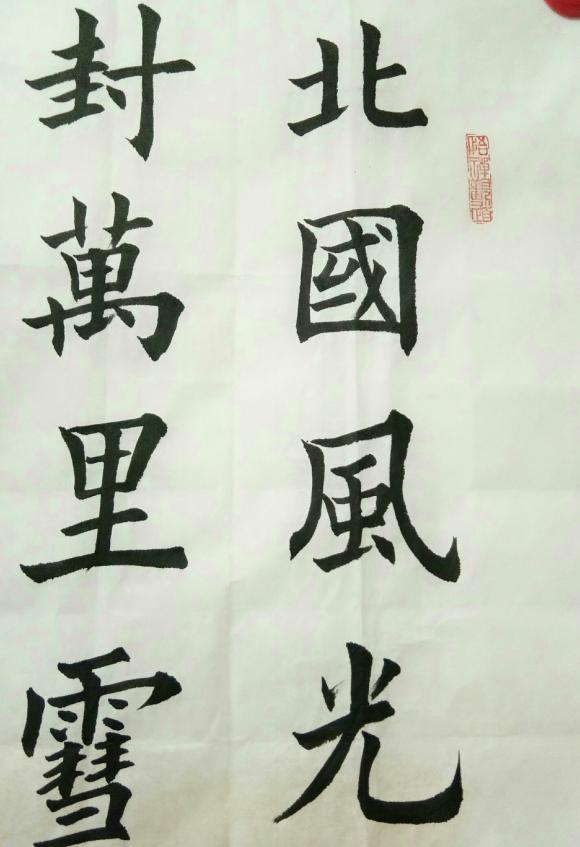 北國風光
封萬里雪